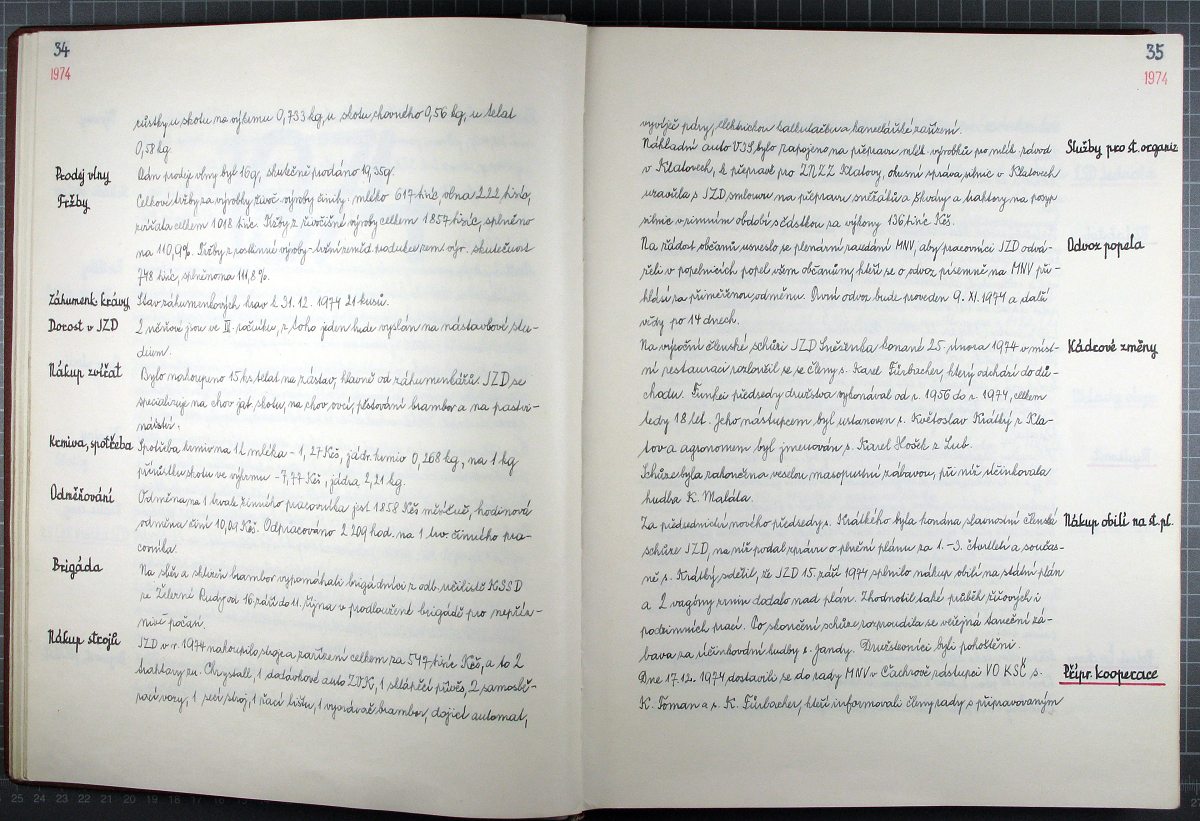 34
1974
růstky u skotu na výkrmu 0,733 kg, u skotu chovného 0,56 kg, u telat
0,58 kg.
Prodej vlny Plán prodeje vlny byl 16q, skutečně prodáno 19,35q.
Tržby Celkové tržby za výrobky živoč. výroby činily: mléko 617 tisíc, vlna 222 tisíc,
zvířata celkem 1018 tisíc. Tržby z živočišné výroby celkem 1857 tisíc, splněno
na 110,9%. Tržby z rostlinné výroby - tržní zeměd. produkce zem. výr. skutečnost
748 tisíc, splněno na 111,8%.
Záhumenk. krávy Stav záhumenkových krav k 31.12.1974 21 kusů.
Dorost v JZD 2 učňové jsou ve III. ročníku, z toho jeden bude vyslán na nástavbové stu-
dium.
Nákup zvířat Bylo nakoupeno 15 ks telat na zástav, hlavně od záhumenkářů. JZD se
specializuje na chov jat. skotu, na chov ovcí, pěstování brambor a na pastvi-
nářství.
Krmiva, spotřeba Spotřeba krmiv na 1 l mléka - 1,27 Kčs, jádr. krmivo 0,268 kg, na 1 kg
přírůstku skotu ve výkrmu - 7,77 Kčs, jádra 2,21 kg.
Odměňování Odměna na 1 trvale činného pracovníka jest 1858 Kčs měsíčně, hodinová
odměna činí 10,09 Kčs. Odpracováno 2 209 hod. na 1 trv. činného pra-
covníka.
Brigáda Na sběr a sklizeň brambor vypomáhali brigádníci z odb. učiliště KSSD
ze Železné Rudy od 16. září do 11. října v prodloužené brigádě pro nepřízni-
nivé počasí.
Nákup strojů JZD v r. 1974 nakoupilo stroje a zařízení celkem za 547 tisíc Kčs, a to 2
traktory zn. Chrystall, 1 dodávkové auto ZUK, 1 sklápěcí přívěs, 2 samosbě-
rací vozy, 1 secí stroj, 1 žací lištu, 1 vyorávač brambor, dojicí automat,
35
1974
vyvíječ páry, elektrickou kalkulačku a kancelářské zařízení.
Nákladní auto V3S bylo zapojeno na přepravu mléč. výrobků pro mlék. závod Služby pro st. organiz.
v Klatovech, k přepravě pro ZNZZ Klatovy, okresní správa silnic v Klatovech
uzavřela s JZD smlouvu na přepravu sněžáků a škváry a traktory na posyp
silnic v zimním období s částkou za výkony 136 tisíc Kčs.
Na žádost občanů usneslo se plenární zasedání MNV, aby pracovníci JZD odvá- Odvoz popela
želi v popelnicích popel všem občanům, kteří se o odvoz písemně na MNV při-
hlásí za přiměřenou odměnu. První odvoz bude proveden 9. XI. 1974 a další
vždy po 14 dnech.
Na výroční členské schůzi JZD Sněženka konané 25. února 1974 v míst- Kádrové změny
ní restauraci rozloučil se se členy s. Karel Fürbacher, který odchází do dů-
chodu. Funkci předsedy družstva vykonával od r. 1956 do r. 1974, celkem
tedy 18 let. Jeho nástupcem byl ustanoven s. Květoslav Krátký z Kla-
tov a agronomem byl jmenován s. Karel Hošek z Lub.
Schůze byla zakončena veselou masopustní zábavou, při níž účinkovala
hudba K. Maláta.
Za předsednictví nového předsedy s. Krátkého byla konána slavnostní členská Nákup obilí na st. pl.
schůze JZD, na níž podal zprávu o plnění plánu za 1.-3. čtvrtletí a součas-
ně s. Krátký sdělil, že JZD 15. září 1974 splnilo nákup obilí na státní plán
a 2 vagóny zrnin dodalo nad plán. Zhodnotil také průběh žňových i
podzimních prací. Po skončení schůze rozproudila se veřejná taneční zá-
bava za účinkování hudby s. Jandy. Družstevníci byli pohoštěni.
Dne 17.12.1974 dostavili se do rady MNV v Čachrově zástupci VO KSČ s. Přípr. kooperace
K. Toman a s. K. Fürbacher, kteří informovali členy rady s připravovaným